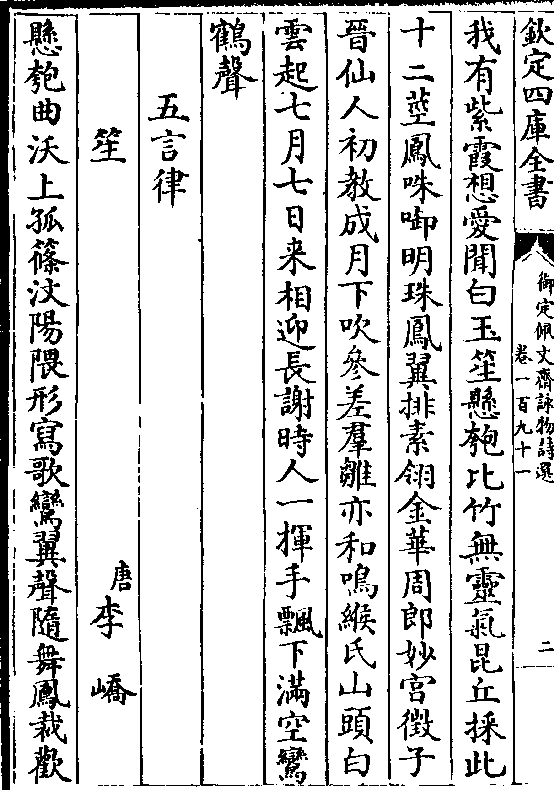 欽定四庫全書
御定佩文齋詠物詩選
卷一百九十一
二
我有紫霞想愛聞白玉笙懸匏比竹無靈氣昆丘採此
十二莖鳳咮啣明珠鳳翼排素翎金華周郎妙宮徵子
晉仙人初教成月下吹參差羣雛亦和鳴緱氏山頭白
雲起七月七日来相迎長謝時人一揮手飄下滿空鸞
鶴聲
五言律
笙
唐李嶠
懸匏曲沃上孤篠汶陽隈形寫歌鸞翼聲隨舞鳳哉歡